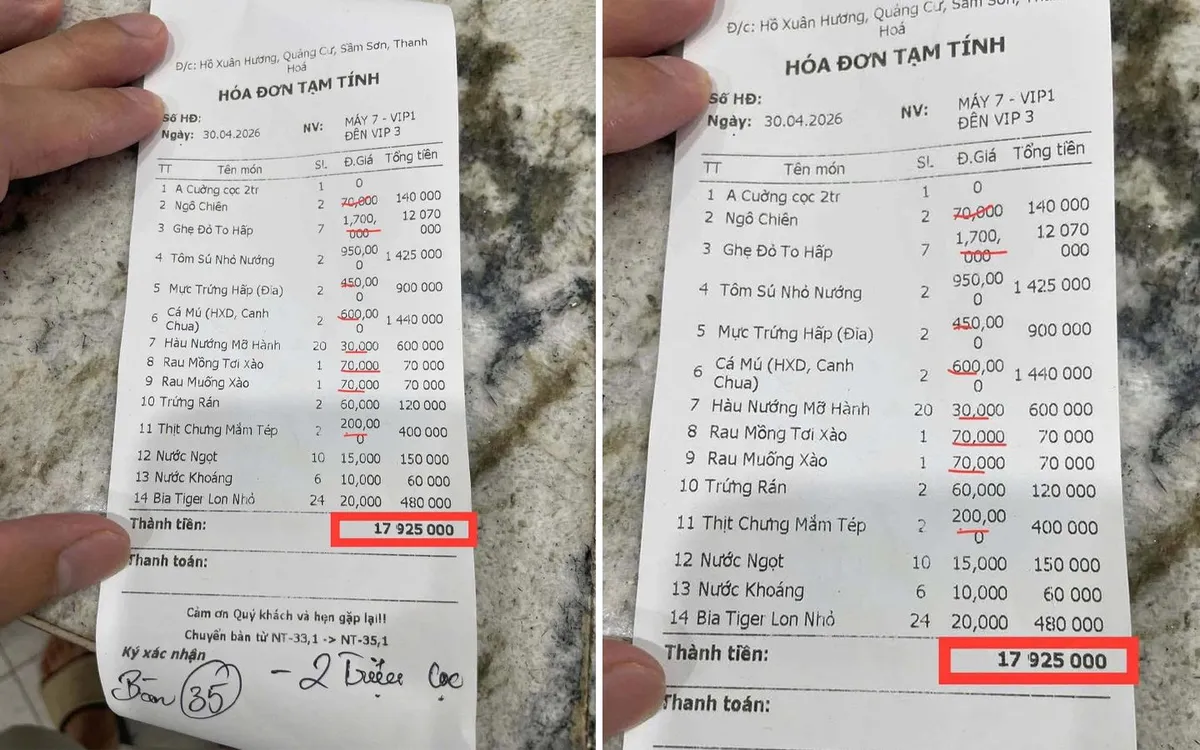 Đ/c: Hồ Xuân Hương, Quảng Cư, Sầm Sơn, Thanh
Hoá
HÓA ĐƠN TẠM TÍNH
Số HĐ:
Ngày: 30.04.2026 NV: MÁY 7 - VIP1
ĐẾN VIP 3
TT Tên món Sl. Đ.Giá Tổng tiền
1 A Cường cọc 2tr 1 0
2 Ngô Chiên 2 70,000 140 000
3 Ghẹ Đỏ To Hấp 7 1,700,
000 12 070
000
4 Tôm Sú Nhỏ Nướng 2 950,00
0 1 425 000
5 Mực Trứng Hấp (Đĩa) 2 450,00
0 900 000
6 Cá Mú (HXD, Canh
Chua) 2 600,00
0 1 440 000
7 Hàu Nướng Mỡ Hành 20 30,000 600 000
8 Rau Mồng Tơi Xào 1 70,000 70 000
9 Rau Muống Xào 1 70,000 70 000
10 Trứng Rán 2 60,000 120 000
11 Thịt Chưng Mắm Tép 2 200,00
0 400 000
12 Nước Ngọt 10 15,000 150 000
13 Nước Khoáng 6 10,000 60 000
14 Bia Tiger Lon Nhỏ 24 20,000 480 000
Thành tiền: 17 925 000
Thanh toán:
Cảm ơn Quý khách và hẹn gặp lại!!
Chuyển bàn từ NT-33,1 -> NT-35,1
Ký xác nhận
Bàn 35 - 2 Triệu Cọc
Đ/c: Hồ Xuân Hương, Quảng Cư, Sầm Sơn, Thanh
Hoá
HÓA ĐƠN TẠM TÍNH
Số HĐ:
Ngày: 30.04.2026 NV: MÁY 7 - VIP1
ĐẾN VIP 3
TT Tên món Sl. Đ.Giá Tổng tiền
1 A Cường cọc 2tr 1 0
2 Ngô Chiên 2 70,000 140 000
3 Ghẹ Đỏ To Hấp 7 1,700,
000 12 070
000
4 Tôm Sú Nhỏ Nướng 2 950,00
0 1 425 000
5 Mực Trứng Hấp (Đĩa) 2 450,00
0 900 000
6 Cá Mú (HXD, Canh
Chua) 2 600,00
0 1 440 000
7 Hàu Nướng Mỡ Hành 20 30,000 600 000
8 Rau Mồng Tơi Xào 1 70,000 70 000
9 Rau Muống Xào 1 70,000 70 000
10 Trứng Rán 2 60,000 120 000
11 Thịt Chưng Mắm Tép 2 200,00
0 400 000
12 Nước Ngọt 10 15,000 150 000
13 Nước Khoáng 6 10,000 60 000
14 Bia Tiger Lon Nhỏ 24 20,000 480 000
Thành tiền: 17 925 000
Thanh toán: